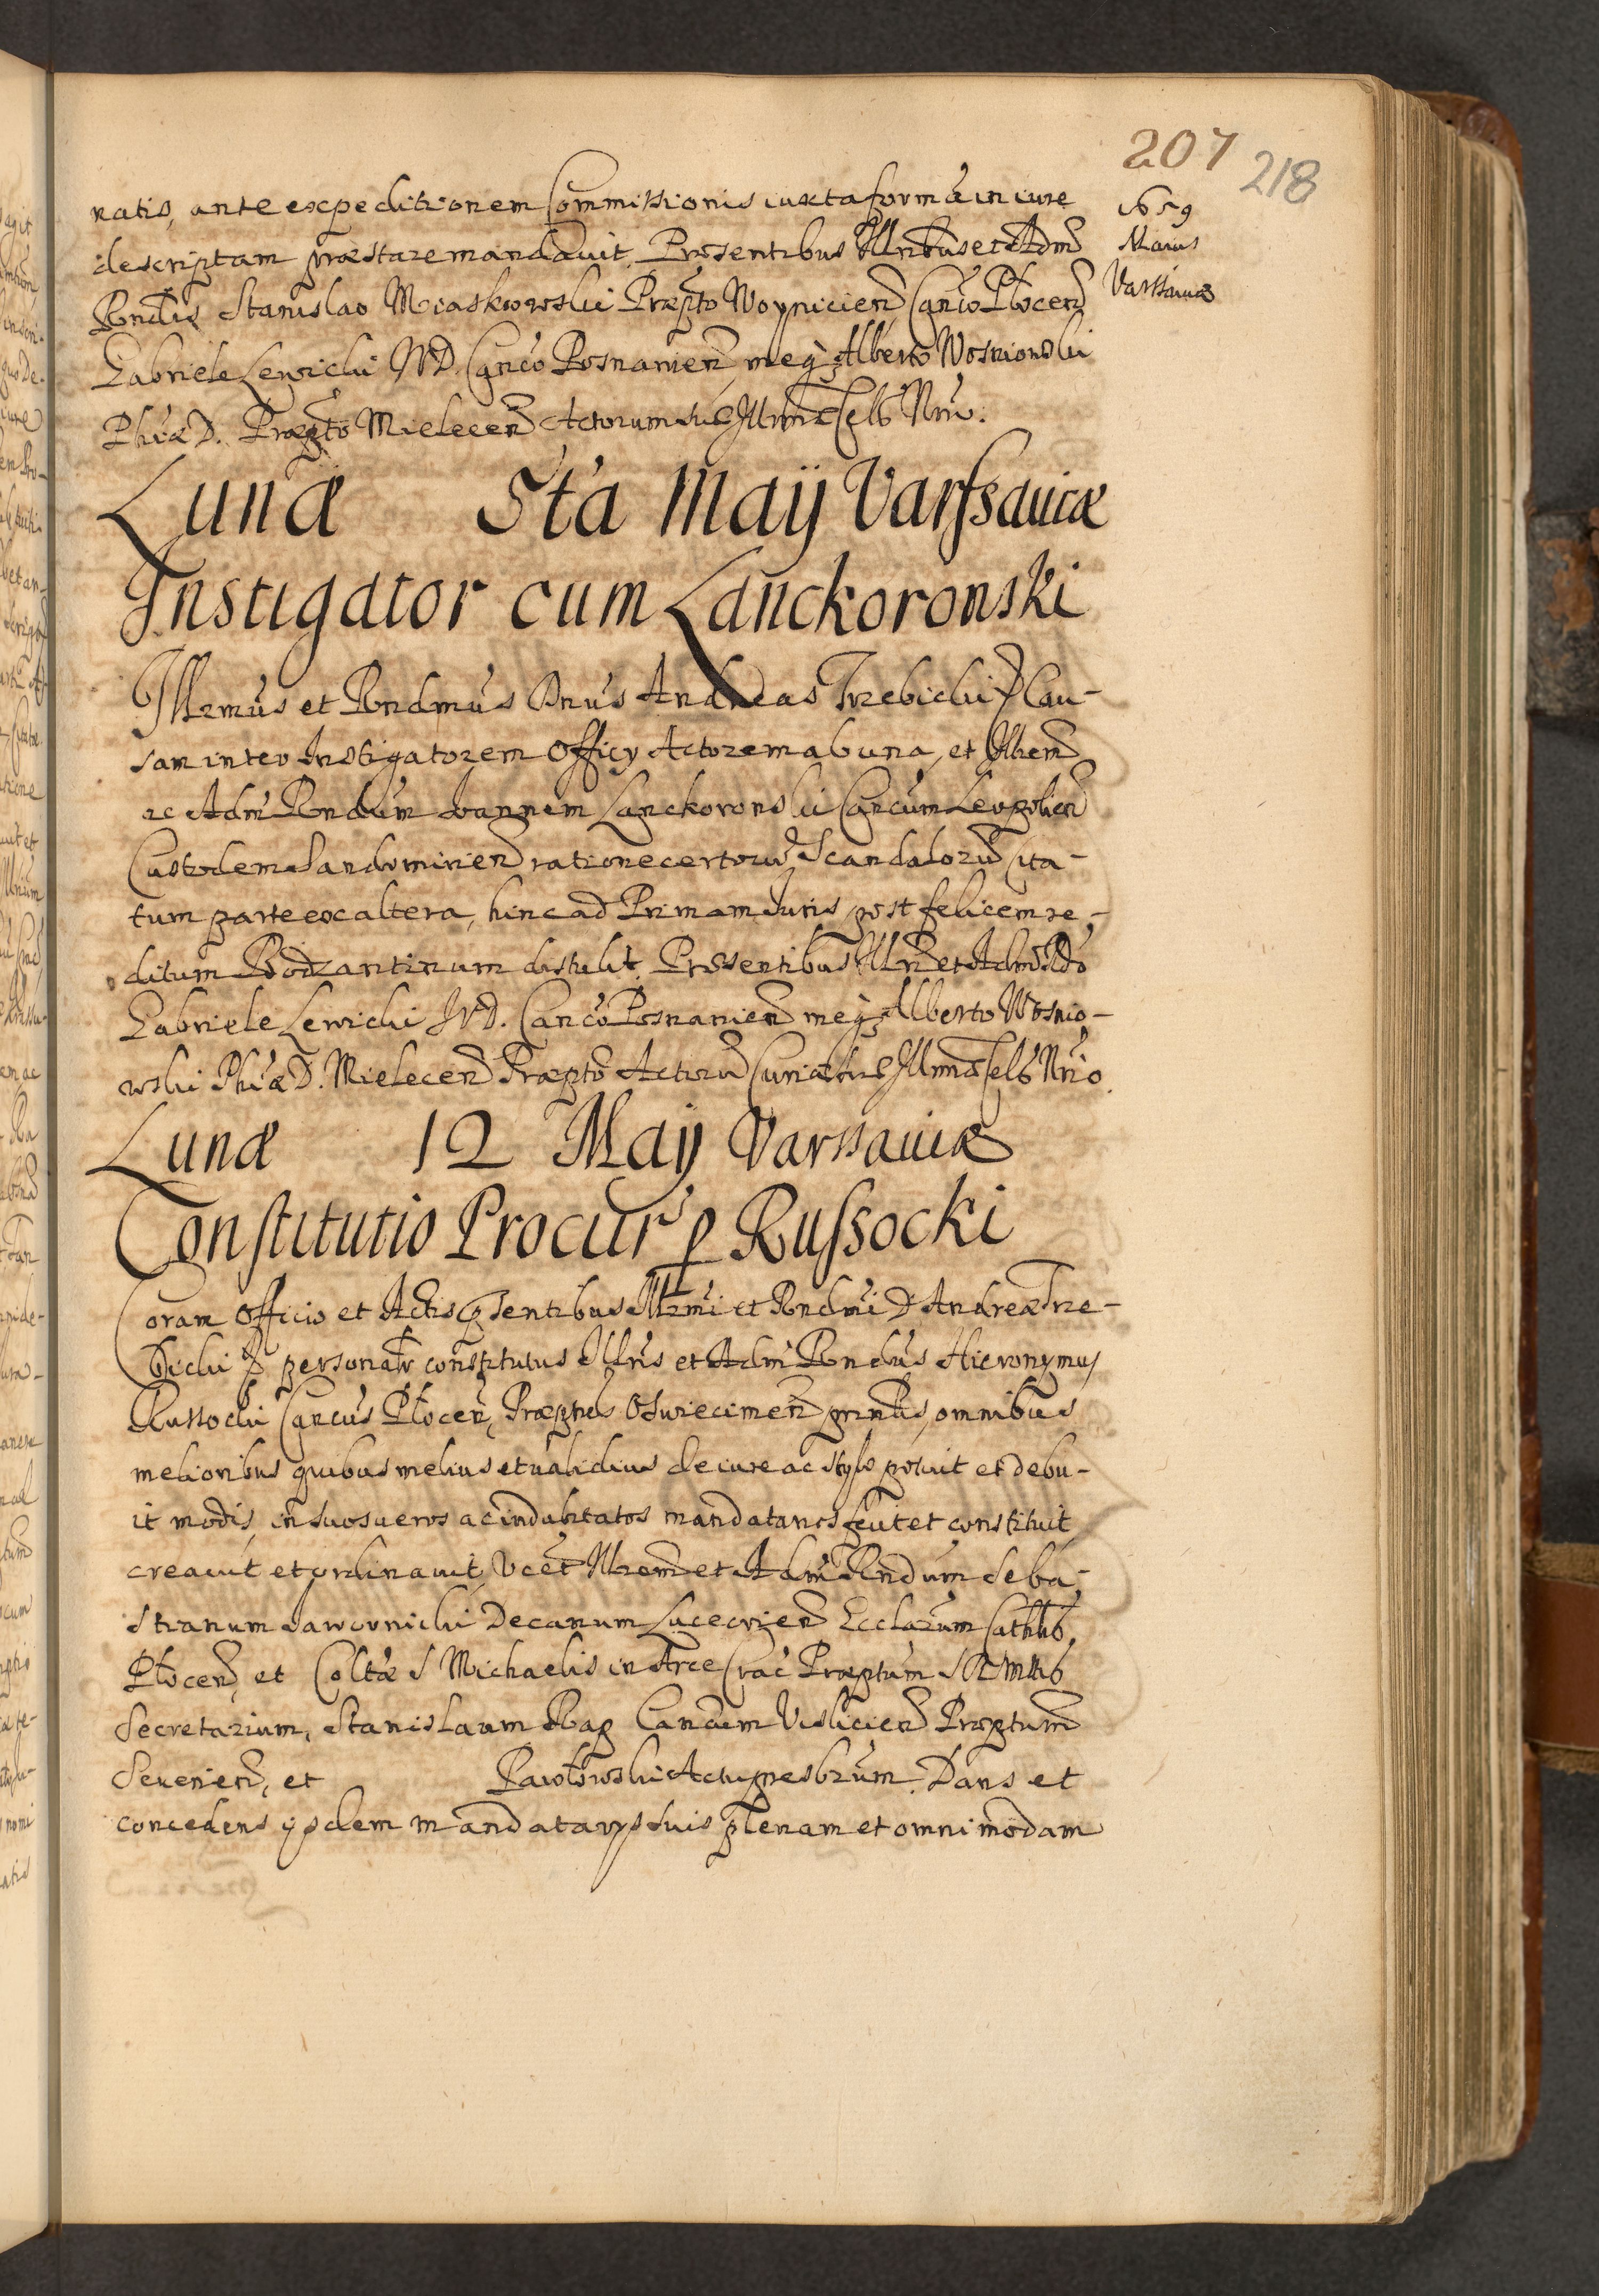 207
218
1659
Maius
Varssauiæ
natis, ante expeditionem Commissionis iuxta formã in iure
descriptam præstare mandauit. Præsentibus Illribus et Adm
Rndis Stanislao Miaskowski Præpto Woynicien Canco Plocen
Gabriele Lewicki IVD. Canco Posnanien, meq; Alberto Wosniowski
Phiæ D. Præpto Mielecen Actorum suæ Illrmæ Cels Nrio.
Lunæ 5ta Maij Varssauiæ
Instigator cum Lanckoronski
Illrmus et Rndmus Dnus Andreas Trzebicki Cau-
sam inter Instigatorem Officij Actorem ab una, et Illrem
ac Adm Rndum Ioannem Lanckoronski Cancum Leopolien
Custodem Sandomirien ratione certorũ Scandalorũ Cita-
tum parte ex altera, hinc ad Primam Iuris post felicem re-
ditum Bodzantinum distulit. Præsentibus Illri et Adm Rdo
Gabriele Lewicki IVD. Canco Posnanien meq; Alberto Wosnio-
wski Phiæ D. Mielecen Præpto Actorũ Curiæ suæ Illrmæ Cels Nrio.
Lunæ 12 Maij Varssauiæ
Constitutio Procur p Russocki
Coram Officio et Actis psentibus Illrmi et Rndmi D. Andreæ Trze-
bicki personalr constitutus Illris et Adm Rndus Hieronymus
Russocki Cancus Plocen, Præptus Oswiecimen principalis, omnibus
melioribus quibus melius et validius de iure ac stylo potuit et debu-
it modis, in suos veros ac indubitatos mandatarios fecit et constituit
creauit et ordinauit, vcet Illrem et Adm Rndum Seba-
stianum Jawornicki Decanum Luceorien Ecclarum Cathlis
Plocen, et Coltæ S Michaelis in Arce Crac Præptum S R Mttis
Secretarium, Stanislaum Rap Cancum Vislicien Præptum
Seuerien, et Pawlowski Actu presbrum. Dans et
concedens ijsdem mandatarijs suis plenam et omnimodam